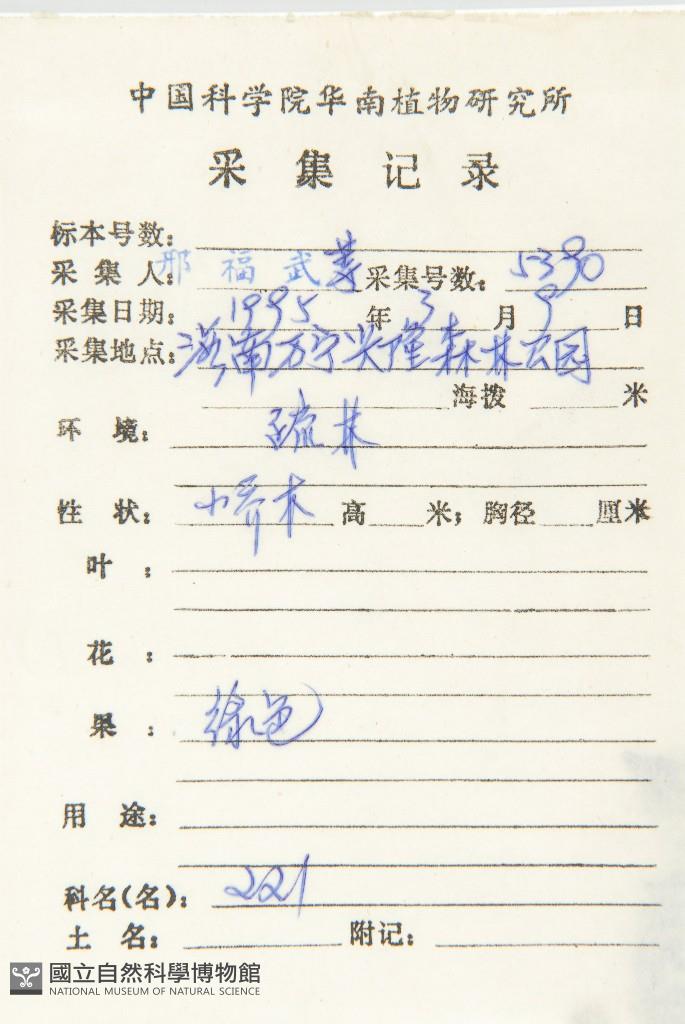 中国科学院华南植物研究所
采集记录
标本号数:
采集人: 邢福武等 采集号数: 5390
采集日期: 1995 年 3 月 9 日
采集地点: 海南万宁兴隆森林公园
海拨 米
环境: 疏林
性状: 小乔木 高 米; 胸径 厘米
叶:
花:
果: 绿色
用途:
科名(名): 221
土名: 附记:
國立自然科學博物館
NATIONAL MUSEUM OF NATURAL SCIENCE